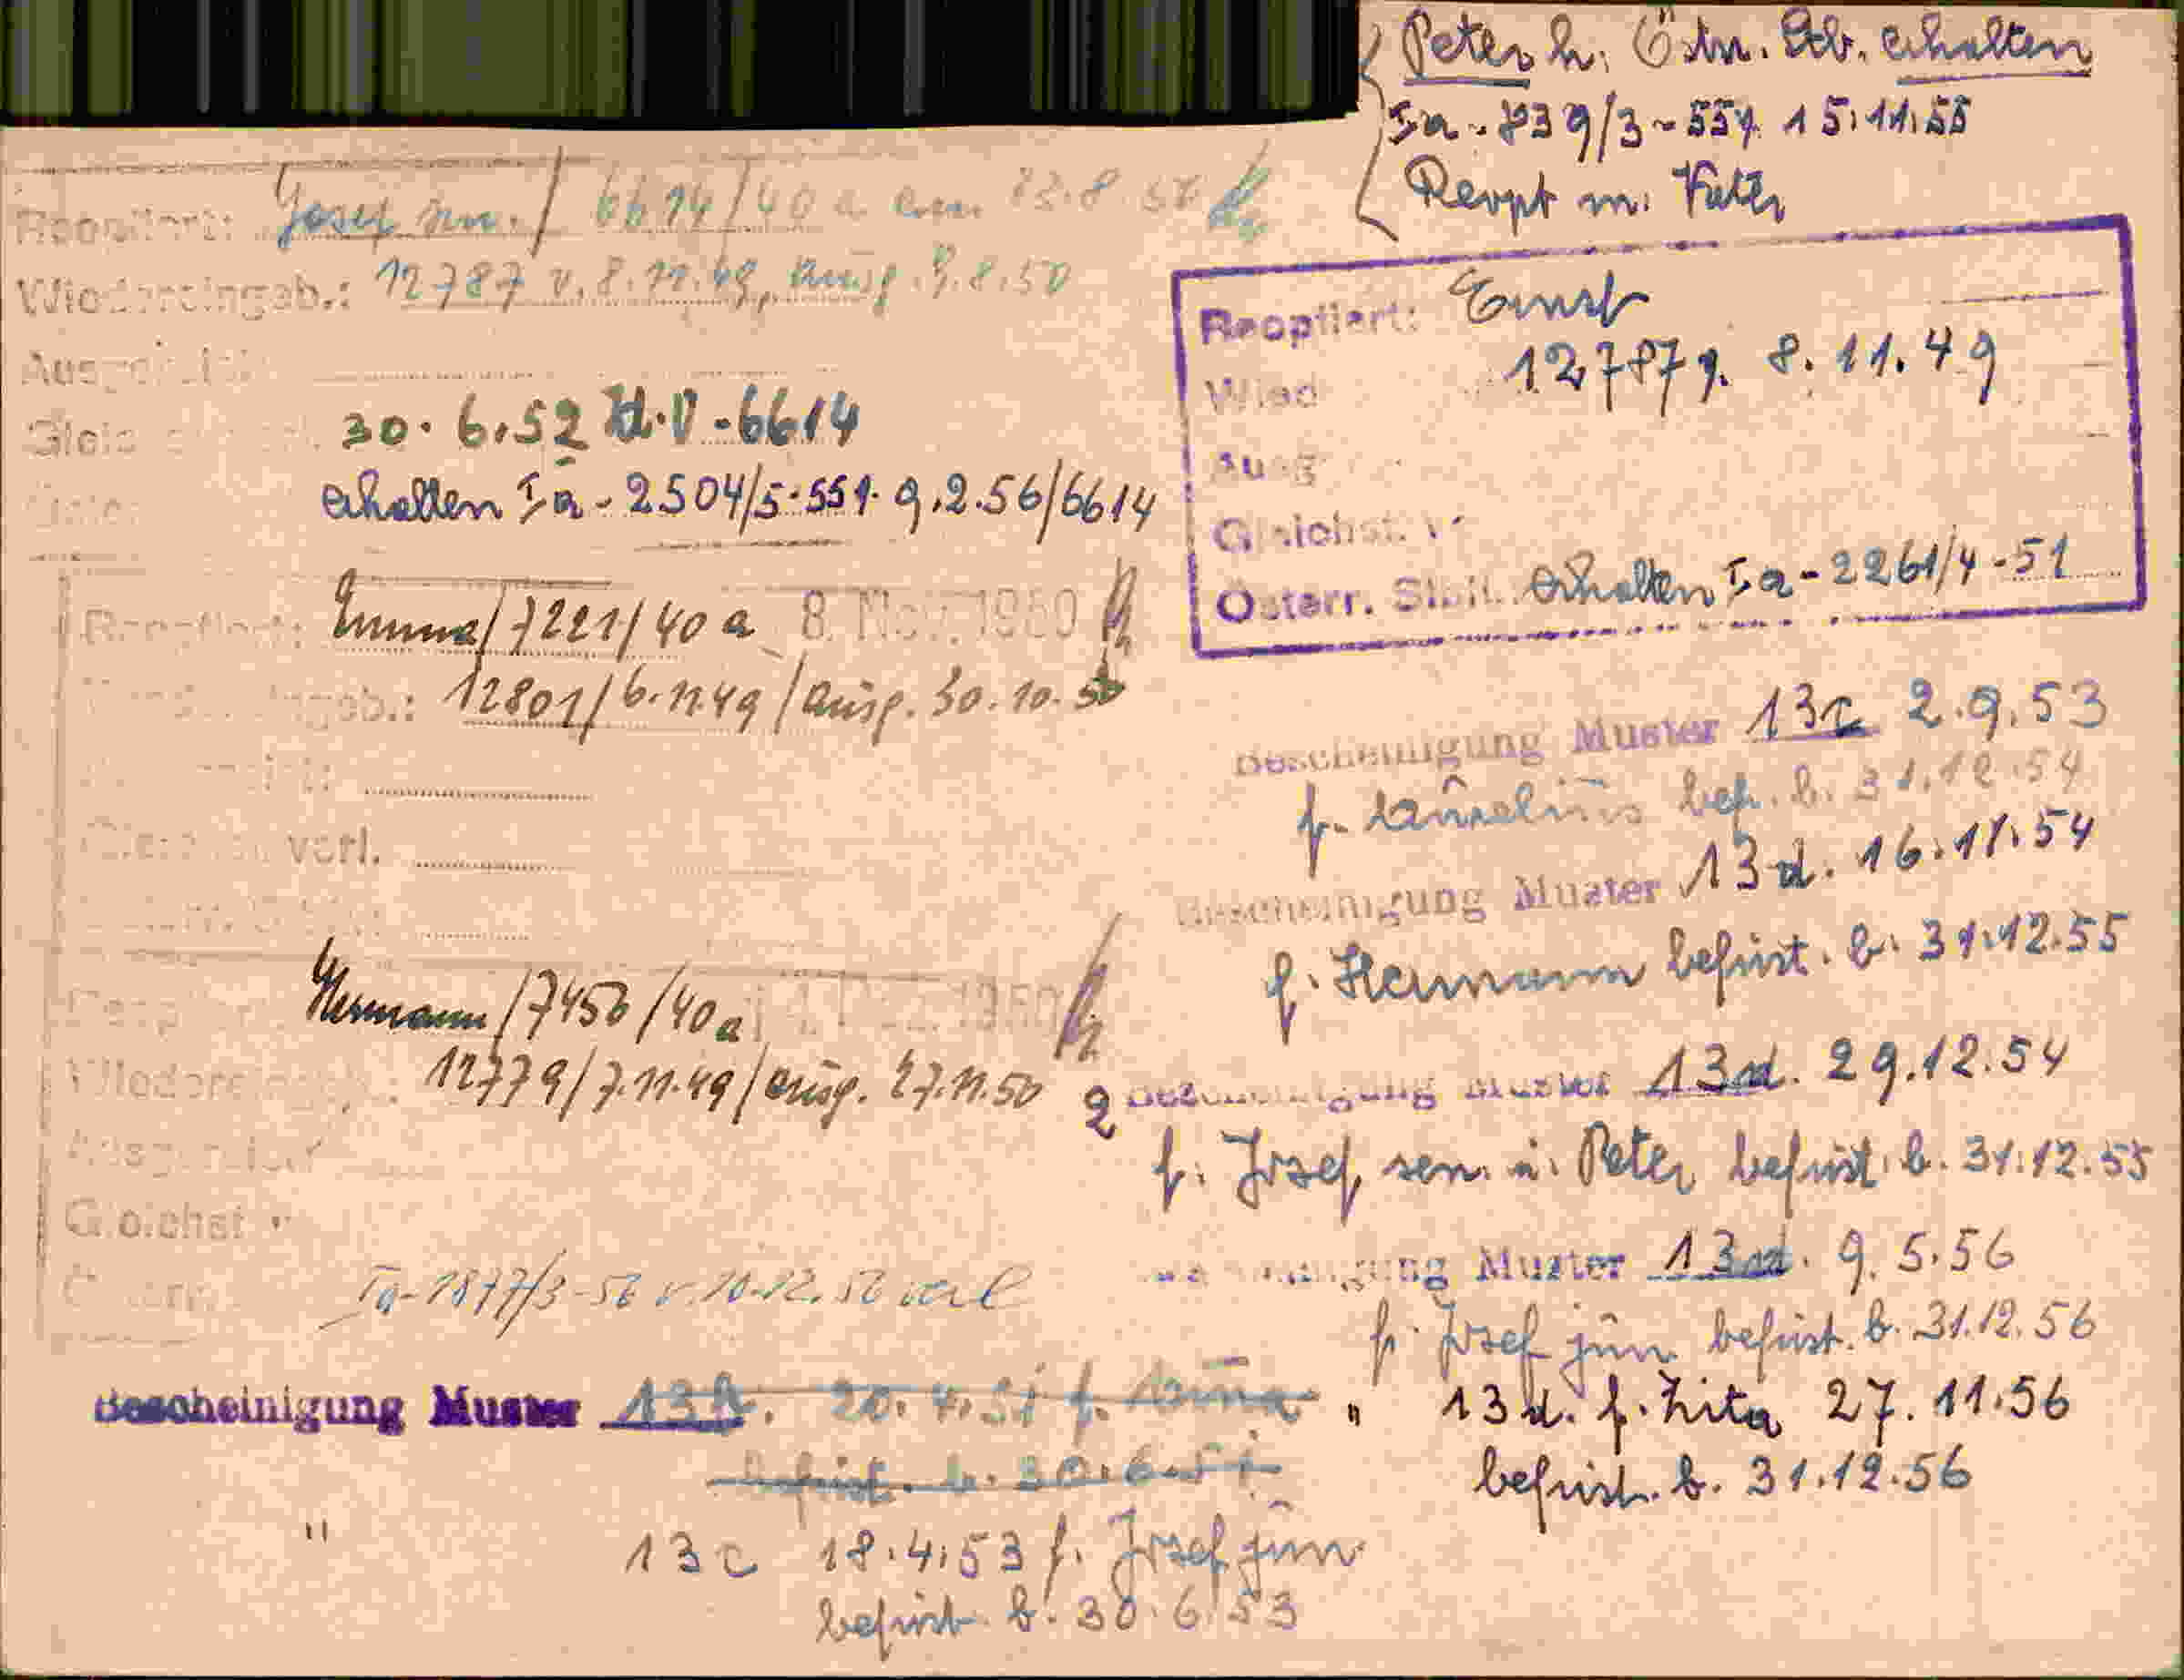 Peter h. Östr. Stb. erhalten
Ia - 839/3 - 551 15.11.55
Reopt m. Vater
Reoptiert: Josef sen. / 6614/40 a am
Wiedereingeb.: 12787 v. 8.11.49, ausg. 9.8.50
30.6.52 -6614
erhalten Ia - 2504/5-551. 9.2.56/6614
Reoptiert: Ernst
12787 8.11.49
Gleichst.
Österr. Stb. erhalten Ia - 2261/4 - 51
Reoptiert: Emma / 7221/40 a 8. Nov. 1950
12801/6.11.49 / ausg. 30.10.50
verl.
Hermann / 7456/40a
Wiedereingeb. 12779/7.11.49/ausg. 27.11.50
Gleichst
Ia-1877/3-52 v. 10.12.52
Bescheinigung Muster 20.4.51 f.
befrist. b. 30.6.51
" 13 c 18.4.53 f. Josef jun
befrist. b. 30.6.53
Bescheinigung Muster 13c 2.9.53
f. bef. b. 31.12.54
Bescheinigung Muster 13 d. 16.11.54
f. Hermann befrist. b. 31.12.55
2 Bescheinigung Muster 13 d. 29.12.54
f. Josef sen. u. Peter befrist. b. 31.12.55
Bescheinigung Muster 13 d. 9.5.56
f. Josef jun befrist. b. 31.12.56
" 13 d. f. Zita 27.11.56
befrist. b. 31.12.56